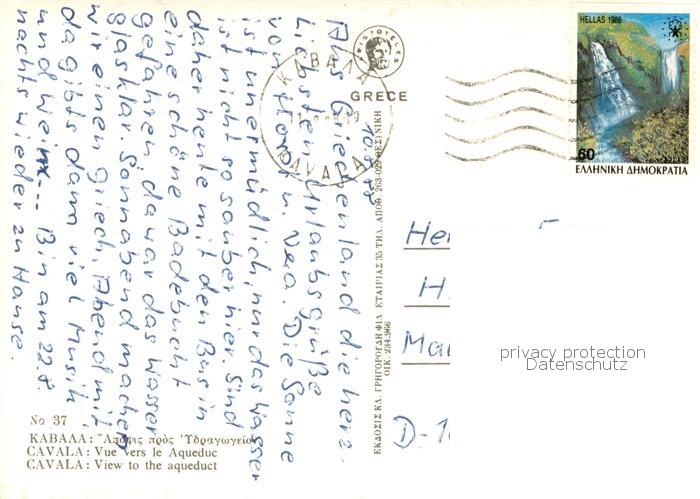 HELLAS 1988
60
ΕΛΛΗΝΙΚΗ ΔΗΜΟΚΡΑΤΙΑ
ARISTOTELES
GRECE
ΚΑΒΑΛΑ
KAVALA
Aus Griechenland die herz-
lichsten Urlaubsgrüße
von u. Vera. Die Sonne
ist unermüdlich, nur das Wasser
ist nicht so sauber hier. Sind
daher heute mit dem Bus in
eine schöne Badebucht
gefahren, da war das Wasser
glasklar. Sonnabend machen
wir einen griech. Abend mit,
da gibts dann viel Musik
und Wein... Bin am 22.8.
nachts wieder zu Hause.
ΕΚΔΟΣΙΣ ΚΛ. ΓΡΗΓΟΡΟΥΔΗ ΦΙΛ. ΕΤΑΙΡΙΑΣ 35 ΤΗΛ. ΑΠΟΘ. ΘΕΣ/ΝΙΚΗ
ΟΙΚ. 284.966
Her
H.
Mar
D-1
privacy protection
Datenschutz
No 37
ΚΑΒΑΛΑ: Ἄποψις πρὸς Ὑδραγωγεῖον
CAVALA: Vue vers le Aqueduc
CAVALA: View to the aqueduct